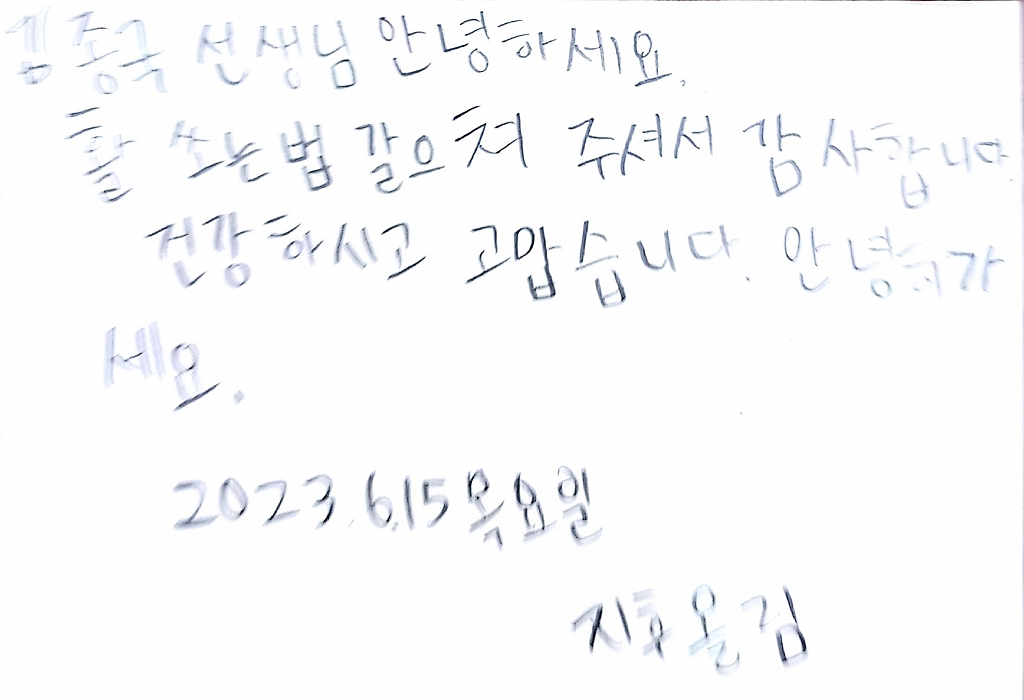 김종국 선생님 안녕하세요.
활 쏘는 법 갈으쳐 주셔서 감사합니다.
건강하시고 고맙습니다. 안녕히가
세요.
2023.6.15 목요일
지호 올림